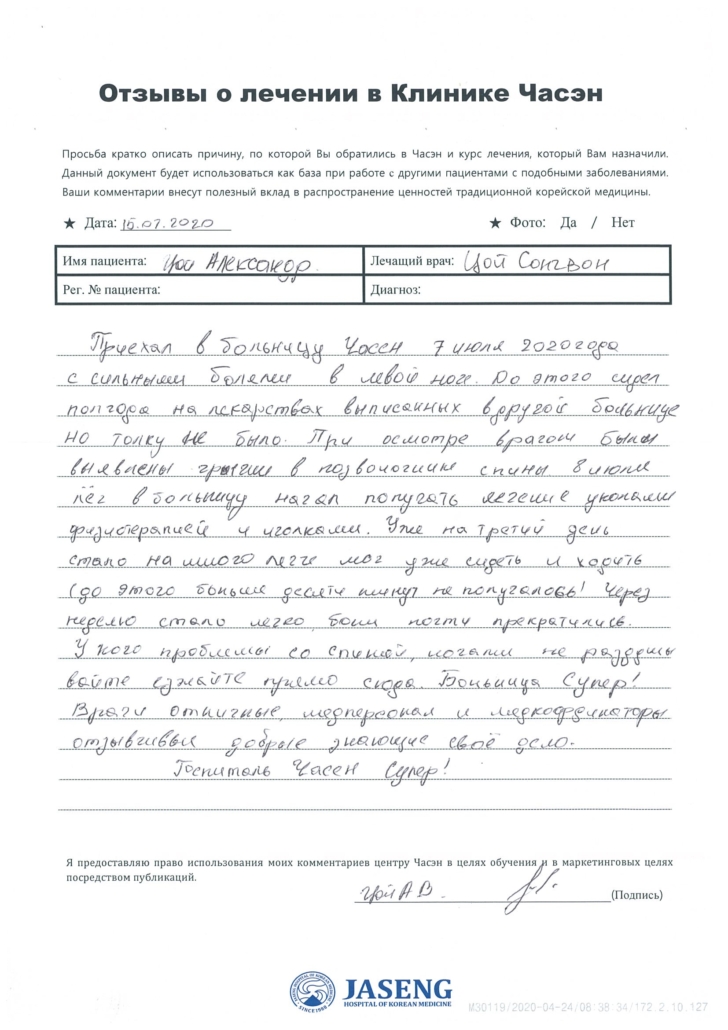 Отзывы о лечении в Клинике Часэн
Просьба кратко описать причину, по которой Вы обратились в Часэн и курс лечения, который Вам назначили.
Данный документ будет использоваться как база при работе с другими пациентами с подобными заболеваниями.
Ваши комментарии внесут полезный вклад в распространение ценностей традиционной корейской медицины.
★ Дата: 15.07.2020 ★ Фото: Да / Нет
Имя пациента: Цой Александр. Лечащий врач: Цой Сонгвон
Рег. № пациента: Диагноз:
Приехал в больницу Часен 7 июля 2020 года
с сильными болями в левой ноге. До этого сидел
полгода на лекарствах выписанных в другой больнице
но толку не было. При осмотре врагом были
выявлены грыжи в позвоночнике спины 8 июля
лёг в больницу начал получать лечение уколами
физиотерапией и иголками. Уже на третий день
стало на много легче мог уже сидеть и ходить
(до этого больше десяти минут не получалось! Через
неделю стало легко, боли почти прекратились.
У кого проблемы со спиной, ногами не раздумы
вайте езжайте прямо сюда. Больница Супер!
Врачи отличные, медперсонал и медкоординаторы
отзывчивые добрые знающие своё дело.
Госпиталь Часен Супер!
Я предоставляю право использования моих комментариев центру Часэн в целях обучения и в маркетинговых целях
посредством публикаций.
Цой А В. (Подпись)
JASENG HOSPITAL OF KOREAN MEDICINE
SINCE 1990
JASENG
HOSPITAL OF KOREAN MEDICINE
M30119/2020-04-24/08:38:34/172.2.10.127